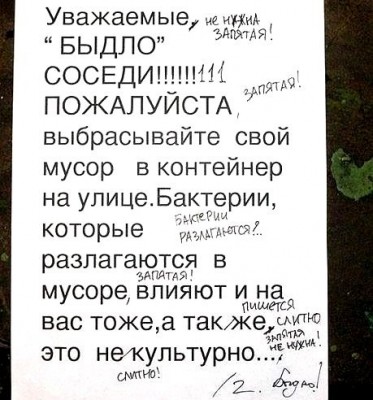 Уважаемые, не нужна
запятая!
“ БЫДЛО”
СОСЕДИ!!!!!!111
запятая!
ПОЖАЛУЙСТА,
выбрасывайте свой
мусор в контейнер
на улице.Бактерии,
бактерии
которые разлагаются?..
разлагаются в
запятая!
мусоре, влияют и на
пишется
вас тоже,а так же, слитно
запятая
не нужна!
это не культурно...,
слитно!
/2. Быдло!